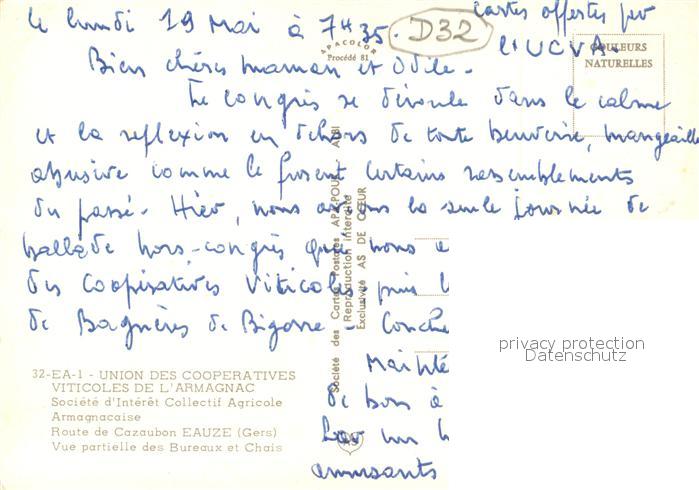 le lundi 19 Mai à 7H35.
D32
cartes offertes par
l'UCVA.
APACOLOR
Procédé 81
COULEURS
NATURELLES
Bien chères maman et Odile.
Le congrès se déroule dans le calme
et la reflexion en dehors de toute beuverie, mangeaille
abusive comme le furent certains rassemblements
du passé. Hier, nous avions la seule journée de
ballade hors-congrès qui nous a
des Coopératives Viticoles puis l
de Bagnères de Bigorre - Conclu
Mainte
de bons à
Par un
amusants
Société des Cartes Postales APA-POUX - ALBI
Reproduction interdite
Exclusivité AS DE CŒUR
32-EA-1 - UNION DES COOPERATIVES
VITICOLES DE L'ARMAGNAC
Société d'Intérêt Collectif Agricole
Armagnacaise
Route de Cazaubon EAUZE (Gers)
Vue partielle des Bureaux et Chais
AS
privacy protection
Datenschutz